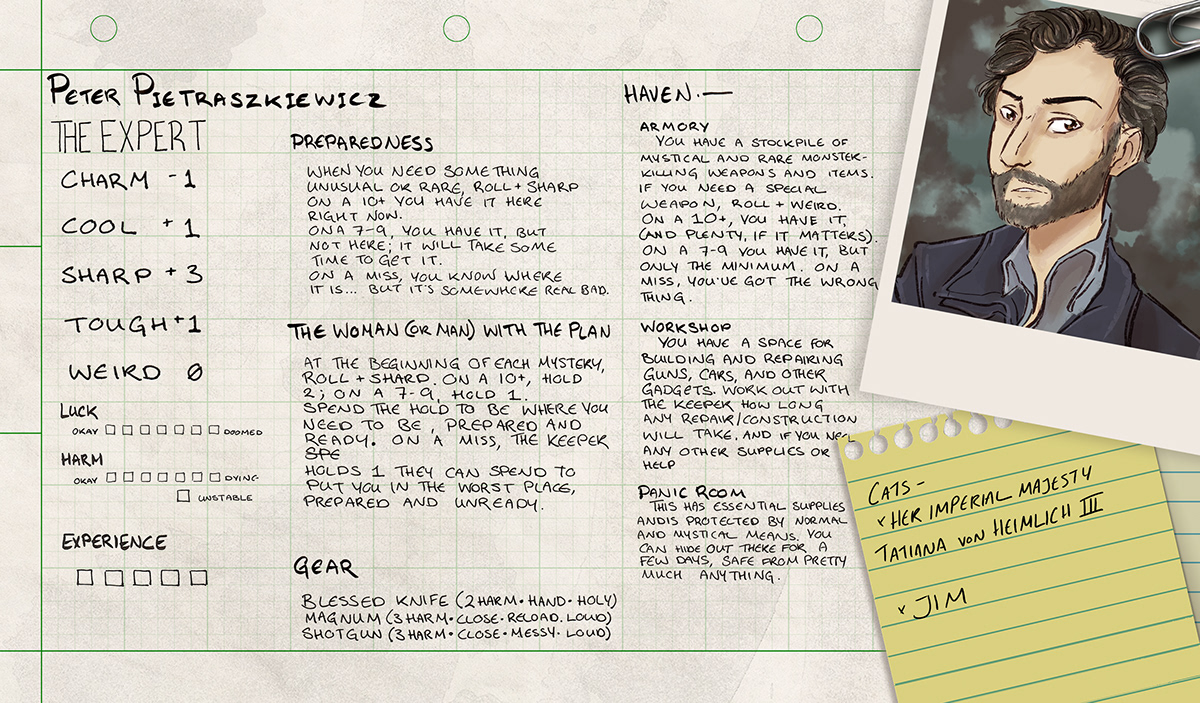 PETER PIETRASZKIEWICZ
THE EXPERT
CHARM -1
COOL +1
SHARP +3
TOUGH +1
WEIRD 0
LUCK
OKAY DOOMED
HARM
OKAY DYING
UNSTABLE
EXPERIENCE
PREPAREDNESS
WHEN YOU NEED SOMETHING
UNUSUAL OR RARE, ROLL + SHARP
ON A 10+ YOU HAVE IT HERE
RIGHT NOW.
ON A 7-9, YOU HAVE IT, BUT
NOT HERE; IT WILL TAKE SOME
TIME TO GET IT.
ON A MISS, YOU KNOW WHERE
IT IS... BUT IT'S SOMEWHERE REAL BAD.
THE WOMAN (OR MAN) WITH THE PLAN
AT THE BEGINNING OF EACH MYSTERY,
ROLL + SHARP. ON A 10+, HOLD
2; ON A 7-9, HOLD 1.
SPEND THE HOLD TO BE WHERE YOU
NEED TO BE, PREPARED AND
READY. ON A MISS, THE KEEPER
SPE
HOLDS 1 THEY CAN SPEND TO
PUT YOU IN THE WORST PLACE,
PREPARED AND UNREADY.
GEAR
BLESSED KNIFE (2 HARM • HAND • HOLY)
MAGNUM (3 HARM • CLOSE • RELOAD. LOUD)
SHOTGUN (3 HARM • CLOSE • MESSY • LOUD)
HAVEN.—
ARMORY
YOU HAVE A STOCKPILE OF
MYSTICAL AND RARE MONSTER-
KILLING WEAPONS AND ITEMS.
IF YOU NEED A SPECIAL
WEAPON, ROLL + WEIRD.
ON A 10+, YOU HAVE IT,
(AND PLENTY, IF IT MATTERS).
ON A 7-9 YOU HAVE IT, BUT
ONLY THE MINIMUM. ON A
MISS, YOU'VE GOT THE WRONG
THING.
WORKSHOP
YOU HAVE A SPACE FOR
BUILDING AND REPAIRING
GUNS, CARS, AND OTHER
GADGETS. WORK OUT WITH
THE KEEPER HOW LONG
ANY REPAIR/CONSTRUCTION
WILL TAKE. AND IF YOU
ANY OTHER SUPPLIES OR
HELP
PANIC ROOM
THIS HAS ESSENTIAL SUPPLIES
AND IS PROTECTED BY NORMAL
AND MYSTICAL MEANS. YOU
CAN HIDE OUT THERE FOR A
FEW DAYS, SAFE FROM PRETTY
MUCH ANYTHING.
CATS-
x HER IMPERIAL MAJESTY
TATIANA VON HEIMLICH III
x JIM